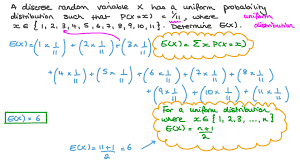 A discrete random variable X has a uniform probability
distribution such that P(X=x) = 1/11, where
x ∈ {1, 2, 3, 4, 5, 6, 7, 8, 9, 10, 11}. Determine E(X).
uniform
distribution
E(X) = (1 × 1/11) + (2 × 1/11) + (3 × 1/11)
E(X) = Σ x P(X=x)
+ (4 × 1/11) + (5 × 1/11) + (6 × 1/11) + (7 × 1/11) + (8 × 1/11)
+ (9 × 1/11) + (10 × 1/11) + (11 × 1/11)
E(X) = 6
For a uniform distribution
where x ∈ {1, 2, 3, ..., n}
E(X) = n+1/2
E(X) = 11+1/2 = 6